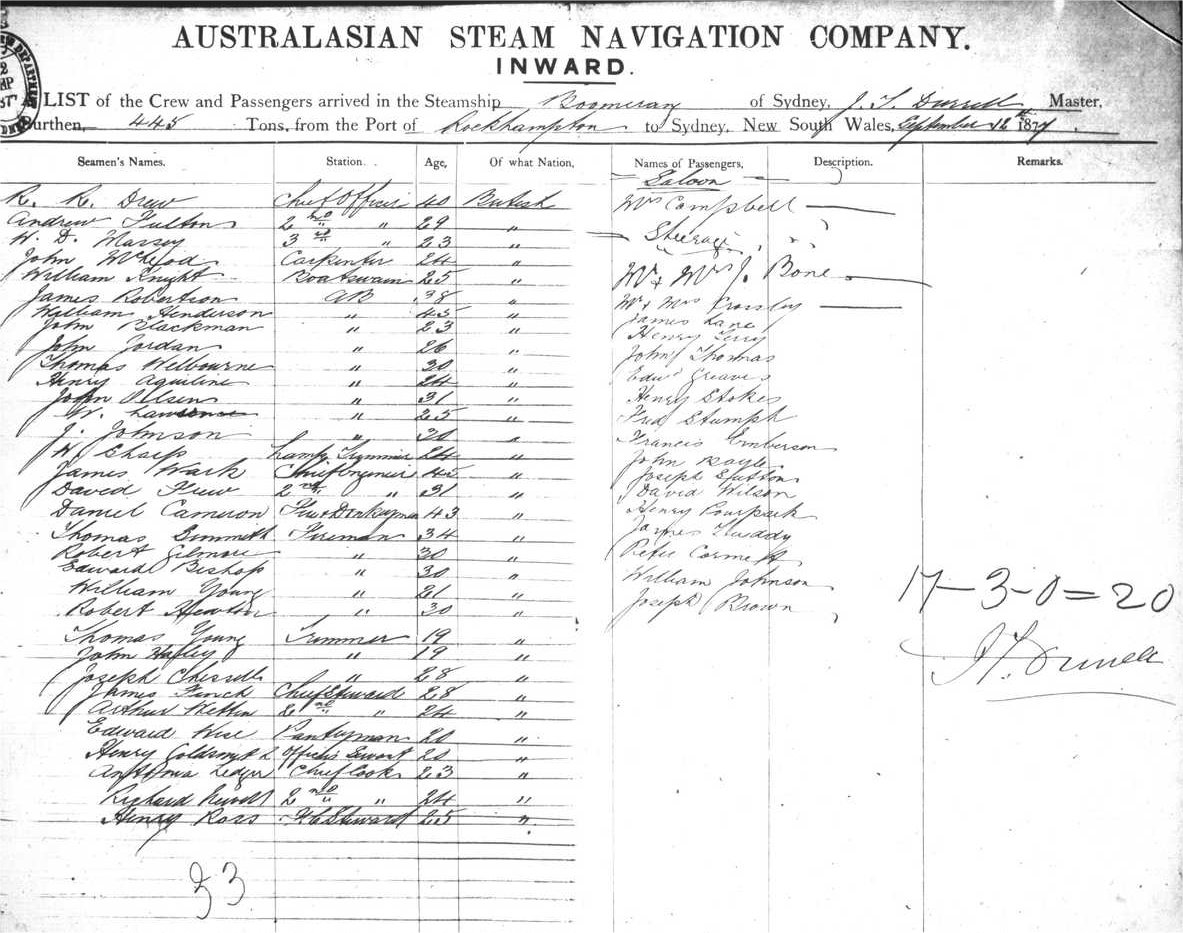 AUSTRALASIAN STEAM NAVIGATION COMPANY.
INWARD.
A LIST of the Crew and Passengers arrived in the Steamship Boomerang of Sydney, J. T. Durrell Master,
Burthen, 445 Tons, from the Port of Rockhampton to Sydney, New South Wales, September 12th 1877
Seamen's Names. Station. Age, Of what Nation, Names of Passengers, Description. Remarks.
Saloon
R. R. Drew Chief Officer 40 British Mrs Campbell
Andrew Fulton 2nd " 29 "
Steerage
W. D. Massey 3rd " 23 "
John McLeod Carpenter 24 "
William Knight Boatswain 25 " Mr & Mrs J. Bone
James Robertson AB 38 " Mr & Mrs Crossley
William Henderson " 45 " James Lane
John Blackman " 23 " Henry Terry
John Jordan " 26 " John Thomas
Thomas Welbourne " 30 " Edwd Greaves
Henry Aquiline " 24 "
John Olsen " 31 " Henry Stokes
W. Lawrence " 25 " Fred Stumph
J. Johnson " 30 " Francis Emberson
W. Sharp Lamp Trimmer 24 " John Boyle
James Wark Chief Engineer 45 " Joseph Sutton
David Frew 2nd " 31 " David Wilson
Daniel Cameron 43 " Henry
Thomas Fireman 34 " James
Robert Gilmore " 30 " Peter
Edward Bishop " 30 "
William Young " 21 " William Johnson
Robert Newton " 30 " Joseph Brown
17-3-0=20
Thomas Young Trimmer 19 "
John " 19 "
J. T. Durrell
Joseph " 28 "
James Finch Chief Steward 28 "
Arthur 2nd " 24 "
Edward Wise Pantryman 20 "
Henry Goldsmith Officers Servant 20 "
Ledger Chief Cook 23 "
Richard 2nd " 24 "
Henry Ross Steward 25 "
33